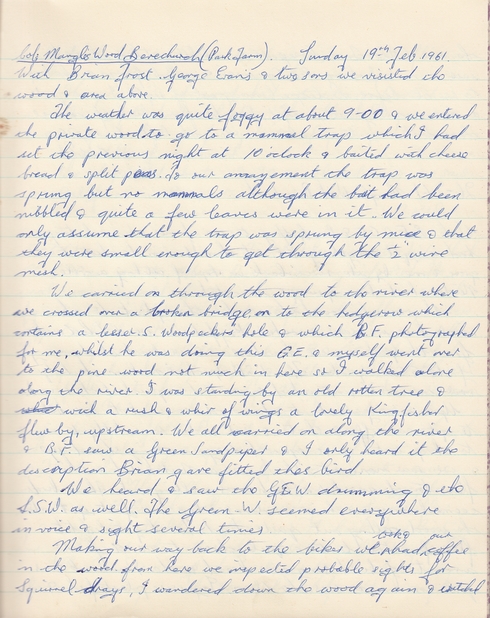 Cobs Mangles Wood, Berechurch (Park Farm). Sunday 19th Feb 1961.
With Brian Frost George Evans & two sons we visited the
wood & area above.
The weather was quite foggy at about 9-00 & we entered
the private wood to go to a mammal trap which I had
set the previous night at 10 oclock & baited with cheese
bread & split peas. To our amazement the trap was
sprung but no mammals although the bait had been
nibbled & quite a few leaves were in it. We could
only assume that the trap was sprung by mice & that
they were small enough to get through the ½" wire
mesh.
We carried on through the wood to the river where
we crossed over a broken bridge on to the hedgerow which
contains a lesser.S. Woodpeckers hole & which B.F. photographed
for me, whilst he was doing this G.E. & myself went over
to the pine wood not much in here so I walked alone
along the river. I was standing by an old rotten tree &
with a rush & whir of wings a lovely Kingfisher
flew by, upstream. We all carried on along the river
& B.F. saw a Green Sandpiper & I only heard it the
description Brian gave fitted this bird.
We heard & saw the G.S.W. drumming & the
L.S.W. as well. The Green W. seemed everywhere
in voice & sight several times
Making our way back to the bikes we had coffee
in the wood from here we inspected probable sights for
Squirrel drays, I wandered down the wood again &